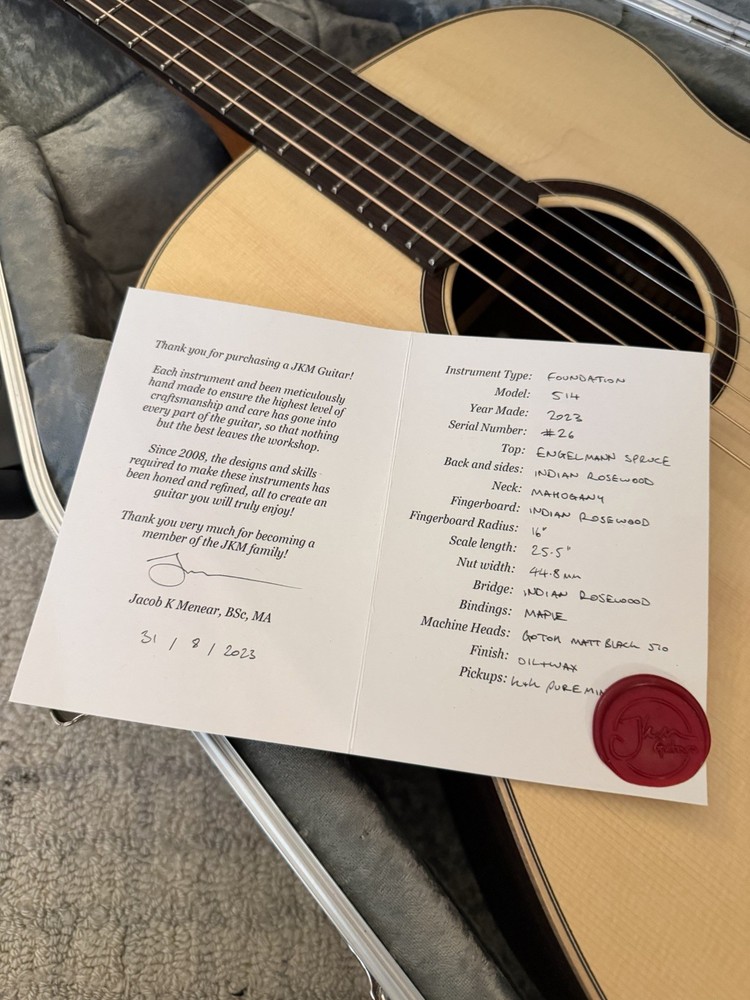 Thank you for purchasing a JKM Guitar!
Each instrument and been meticulously
hand made to ensure the highest level of
craftsmanship and care has gone into
every part of the guitar, so that nothing
but the best leaves the workshop.
Since 2008, the designs and skills
required to make these instruments has
been honed and refined, all to create an
guitar you will truly enjoy!
Thank you very much for becoming a
member of the JKM family!
Jacob K Menear, BSc, MA
31 / 8 / 2023
Instrument Type: FOUNDATION
Model: 514
Year Made: 2023
Serial Number: #26
Top: ENGELMANN SPRUCE
Back and sides: INDIAN ROSEWOOD
Neck: MAHOGANY
Fingerboard: INDIAN ROSEWOOD
Fingerboard Radius: 16"
Scale length: 25.5"
Nut width: 44.8mm
Bridge: INDIAN ROSEWOOD
Bindings: MAPLE
Machine Heads: GOTOH MATT BLACK 510
Finish: OIL+WAX
Pickups: K+K PURE MIN
JKM